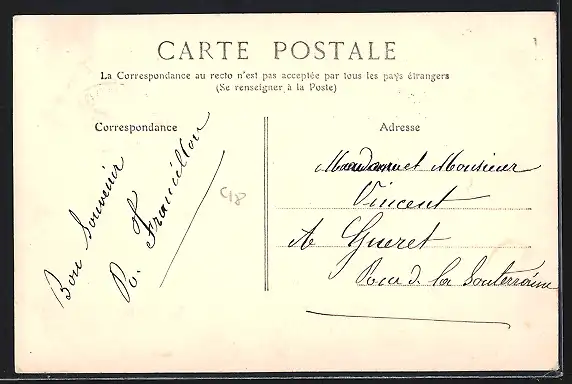 CARTE POSTALE
La Correspondance au recto n'est pas acceptée par tous les pays étrangers
(Se renseigner à la Poste)
Correspondance
Bon Souvenir
R.
C18
Adresse
et Monsieur
Vincent
A Gueret
Rue d. la Souterraine